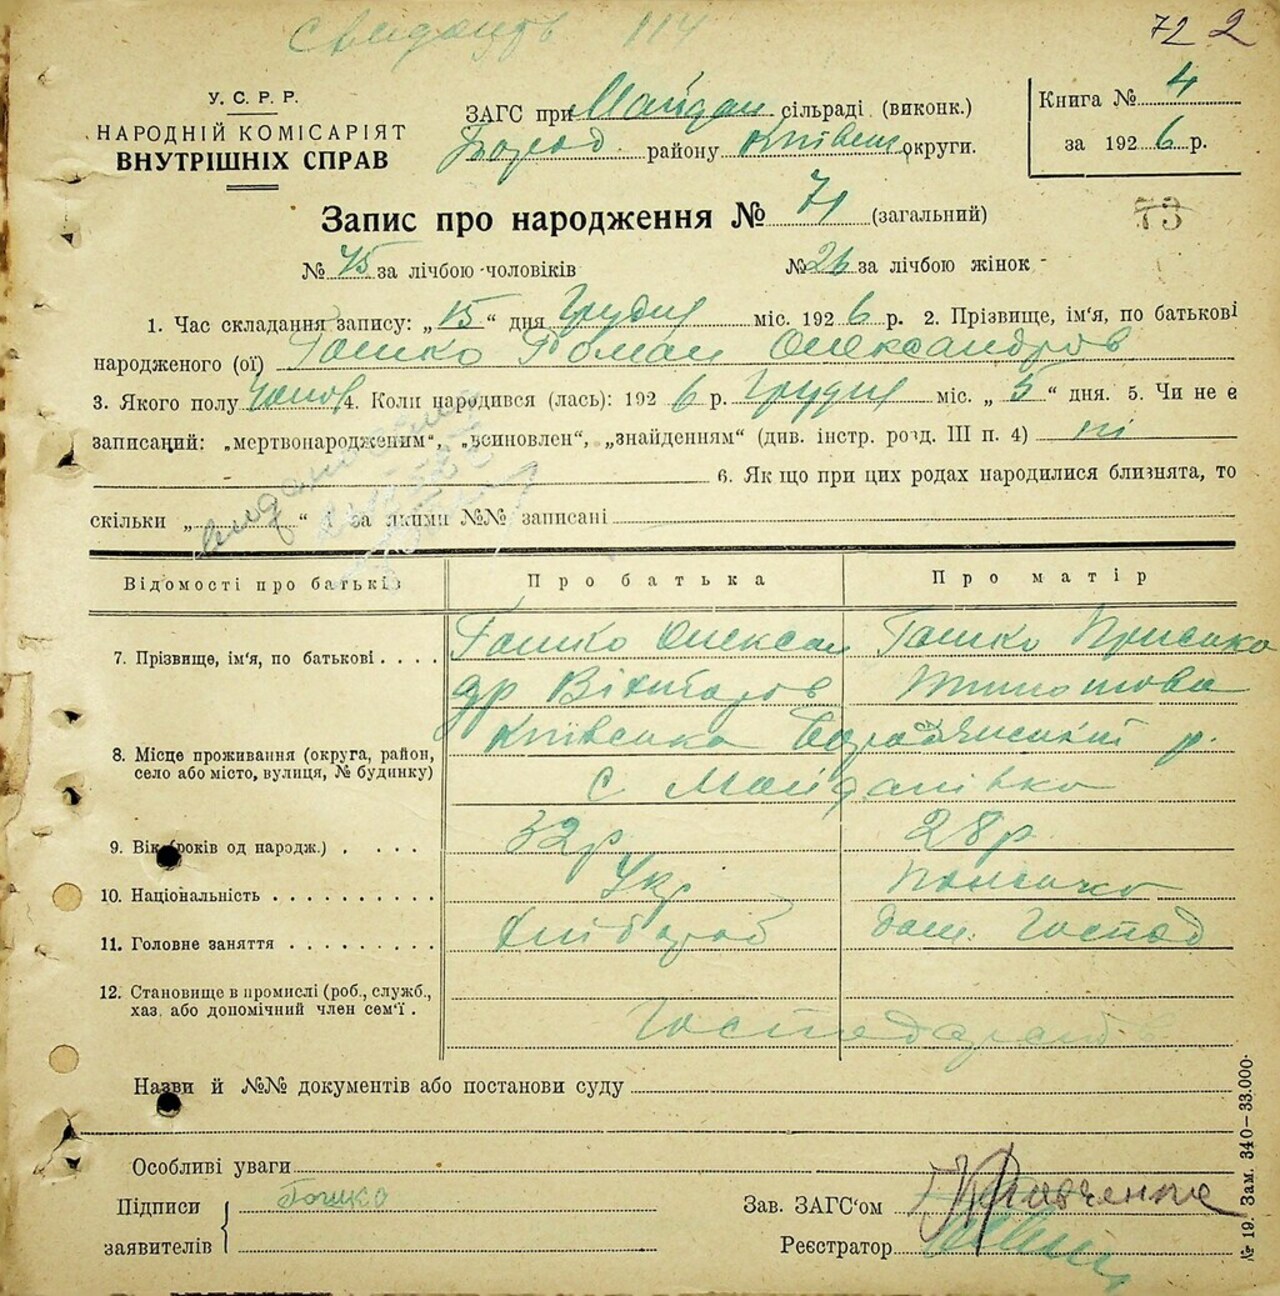 72 2
У. С. Р. Р.
НАРОДНІЙ КОМІСАРІЯТ
ВНУТРІШНІХ СПРАВ
ЗАГС при Майдан сільраді (виконк.)
Бород. району Київськ округи.
Книга № 4
за 1926 р.
Запис про народження № 71 (загальний)
73
№ 45 за лічбою чоловіків
№ 26 за лічбою жінок
1. Час складання запису: „15“ дня Грудня міс. 1926 р. 2. Прізвище, ім‘я, по батькові
народженого (ої) Гошко Роман Олександров
3. Якого полу Чолов 4. Коли народився (лась): 1926 р. Грудня міс. „5“ дня. 5. Чи не є
записаний: „мертвонародженим“, „всиновлен“, „знайденням“ (див. інстр. розд. III п. 4) ні
6. Як що при цих родах народилися близнята, то
скільки „ “ і за якими №№ записані
Відомості про батьків Про батька Про матір
7. Прізвище, ім‘я, по батькові . . . . Гошко Олексан Гошко Приська
др Вікторов
8. Місце проживання (округа, район, Київська Бородянський р.
село або місто, вулиця, № будинку) с Майданівка
9. Вік (років од народж.) . . . . 32р 28р
10. Національність . . . . . . . . . . Укр
11. Головне заняття . . . . . . . . . Хлібороб Дом. Господ
12. Становище в промислі (роб., служб.,
хаз. або допомічний член сем‘ї .
Назви й №№ документів або постанови суду
Особливі уваги
Підписи Гошко
заявителів
Зав. ЗАГС‘ом
Реєстратор
№ 19. Зам. 340—33.000.